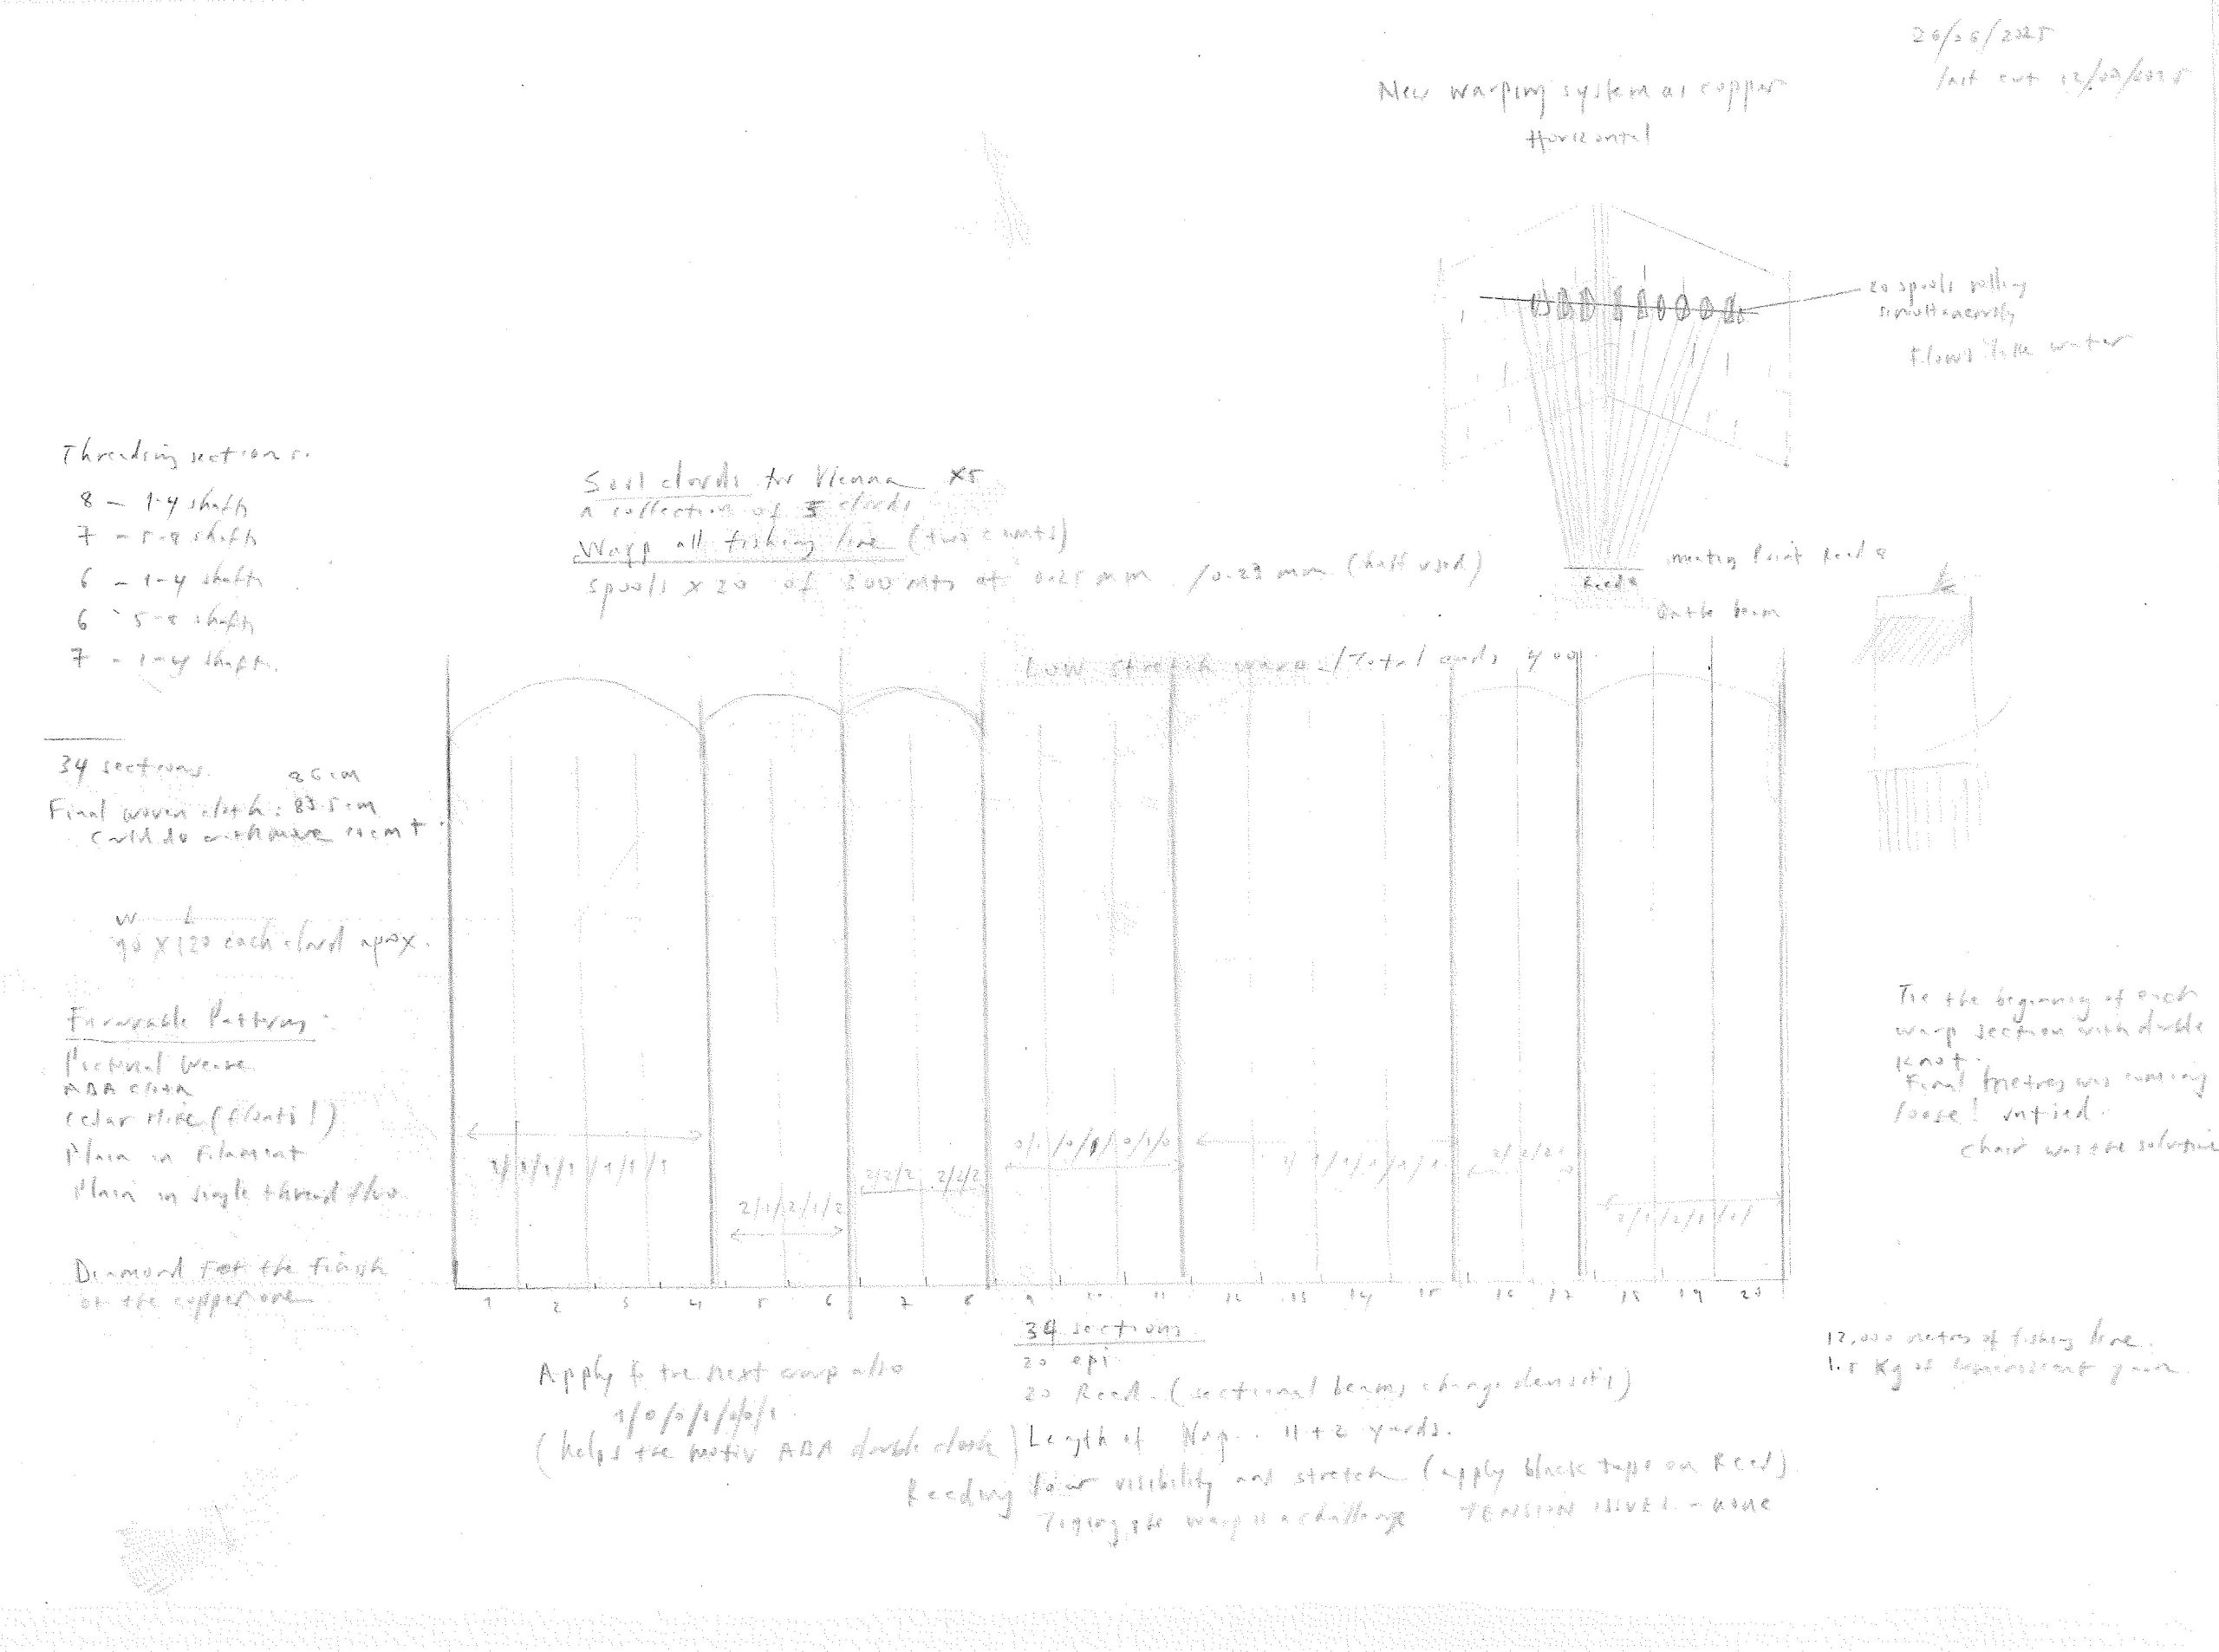 26/06/2025
last cut 12/09/2025
New warping system as copper
Horizontal
20 spools rolling
simultaneously
Flows like water
meeting Point Reed 8
Reed 8
On the beam
Threading sections:
8 – 1-4 shafts
7 – 5-8 shafts
6 – 1-4 shafts
6 - 5-8 shafts
7 - 1-4 shafts.
Soil clouds for Vienna x5
a collection of 5 clouds
Warp all fishing line (two counts)
Spools x 20 of 300 mts at 0.25 mm / 0.23 mm (half used)
Low stretch warp / Total ends 400
34 sections.
86 cm
Final woven cloth: 83.5 cm
Could do with more 10 cm +
W L
90 x 120 each cloud apox.
Favourable Patterns:
Pictorial Weave
ABA cloth
(floats!)
Plain in Filament
Plain in single thread
Diamond For the finish
of the copper one
Tie the beginning of each
warp section with double
knot.
Final metres was coming
loose! untied.
chair was the solution
1/1/1/1/1/1/1
2/1/2/1/2
2/2/2 2/2/2
0/1/0/1/0/1/0
2/1/2/1/
1 2 3 4 5 6 7 8 9 10 11 12 13 14 15 16 17 18 19 20
34 sections
20 epi.
20 Reed. (sectional beams change density)
Length of Warp: 11 + 2 yards.
Apply to the next warp also
1/0/0/1/0/0/1
(helps the motiv ABA double cloth)
Reeding low visibility and stretch (apply black tape on Reed)
the warp is a challenge TENSION ISSUES - NONE
12,000 metres of fishing line.
1.5 Kg of yarn.